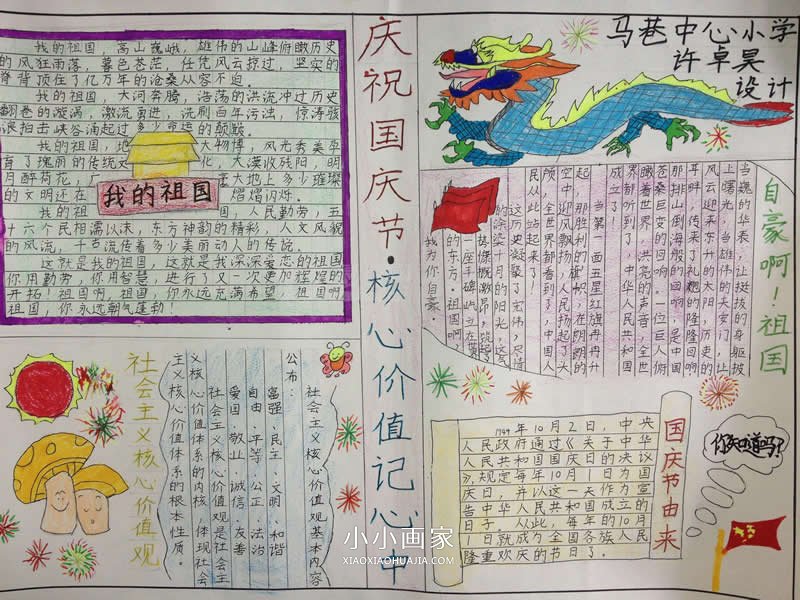 庆祝国庆节·核心价值记心中
马巷中心小学
许卓昊
设计
我的祖国，高山巍峨，雄伟的山峰俯瞰历史
的风狂雨落，暮色苍茫，任凭风云掠过，坚实的
脊背顶住了亿万年的沧桑从容不迫。
我的祖国，大河奔腾，浩荡的洪流冲过历史
翻卷的漩涡，激流勇进，洗刷百年污浊，惊涛骇
浪拍击峡谷涌起过多少命运的颠簸。
我的祖国，地大物博，风光秀美孕
育了瑰丽的传统文化，大漠收残阳，明
月醉荷花，
大地上多少璀璨
的文明还在熠熠闪烁。
我的祖国
我的祖国，人民勤劳，五
十六个民相濡以沫，东方神韵的精彩，人文风貌
的风流，千古流传着多少美丽动人的传说。
这就是我的祖国，这就是我深深爱恋的祖国
你用勤劳，你用智慧，进行了又一次更加辉煌的
开拓！祖国啊，祖国，你永远充满希望，祖国啊
祖国，你永远朝气蓬勃！
自豪啊！祖国
当巍的华表，让挺拔的身躯披
上曙光，当雄伟的天安门，让
风云迎来东升的太阳，历史的
耳畔，传来了礼炮的隆隆回响
那排山倒海般的回响，是中国
苍桑巨变的回响。一位巨人俯
瞰着世界，洪亮的声音，全世
界都听到了，中华人民共和国
成立了！
当第一面五星红旗冉冉升
起，那胜利的旗帜，在朗朗的
空中迎风飘扬，人民扬起了头
颅，全世界都看到了，中国人
民从此站起来了！
这历史凝聚了宏伟，尽情
的涂染十月的阳光，这
气势慷慨激昂，筑起
一座丰碑屹立在世界
的东方。祖国啊
我为你自豪
社会主义核心价值观
社会主义核心价值观基本内容
公布：
富强、民主、文明、和谐
自由、平等、公正、法治
爱国、敬业、诚信、友善
社会主义核心价值观是社会主
义核心价值体系的内核，体现社会
主义核心价值体系的根本性质。
国庆节由来
1949年10月2日，中央
人民政府通过《关于中华
人民共和国国庆日的决议
》，规定每年10月1日为国
庆日，并以这一天作为宣
告中华人民共和国成立的
日子。从此，每年的10月
1日就成为全国各族人民
隆重欢庆的节日了。
你知道吗？
小小画家
XIAOXIAOHUAJIA.COM